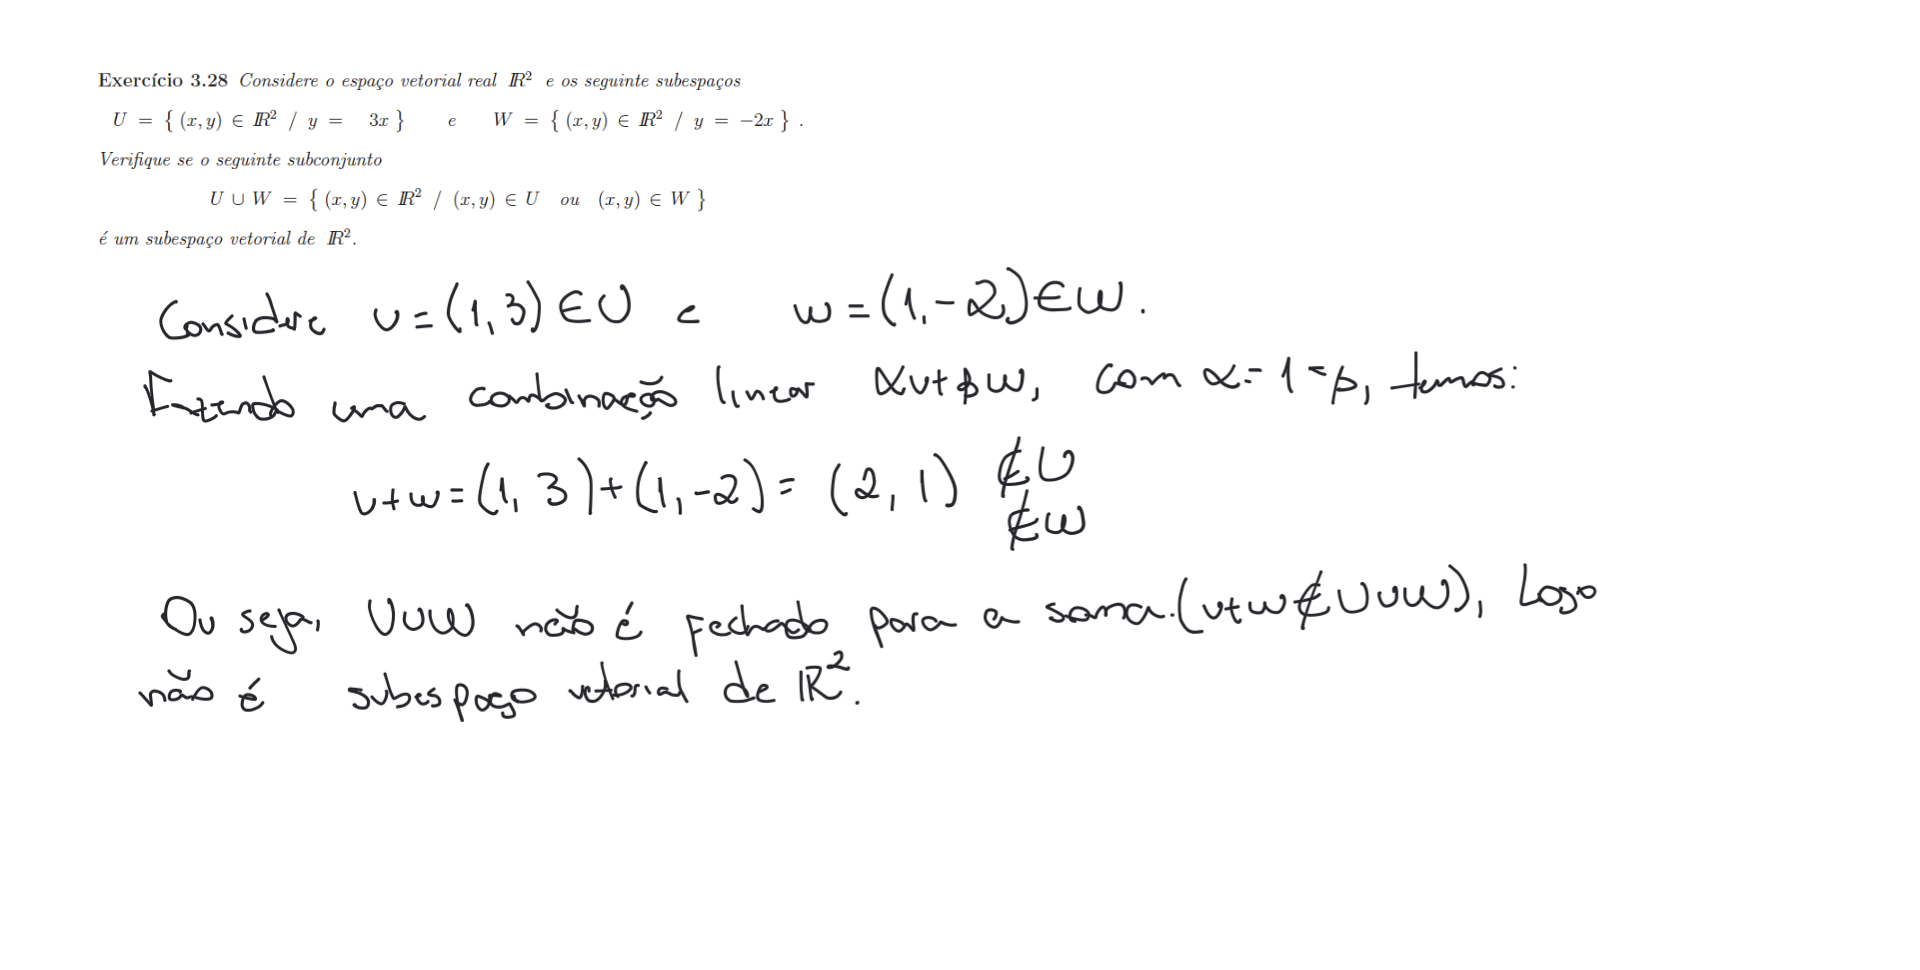 Exercício 3.28 Considere o espaço vetorial real IR² e os seguinte subespaços
U = { (x, y) ∈ IR² / y = 3x } e W = { (x, y) ∈ IR² / y = −2x } .
Verifique se o seguinte subconjunto
U ∪ W = { (x, y) ∈ IR² / (x, y) ∈ U ou (x, y) ∈ W }
é um subespaço vetorial de IR².
Considere u = (1, 3) ∈ U e w = (1, -2) ∈ W.
Fazendo uma combinação linear αu + βw, com α = 1 = β, temos:
u + w = (1, 3) + (1, -2) = (2, 1) ∉ U
∉ W
Ou seja, U∪W não é fechado para a soma. (u+w ∉ U∪W), Logo
não é subespaço vetorial de IR².